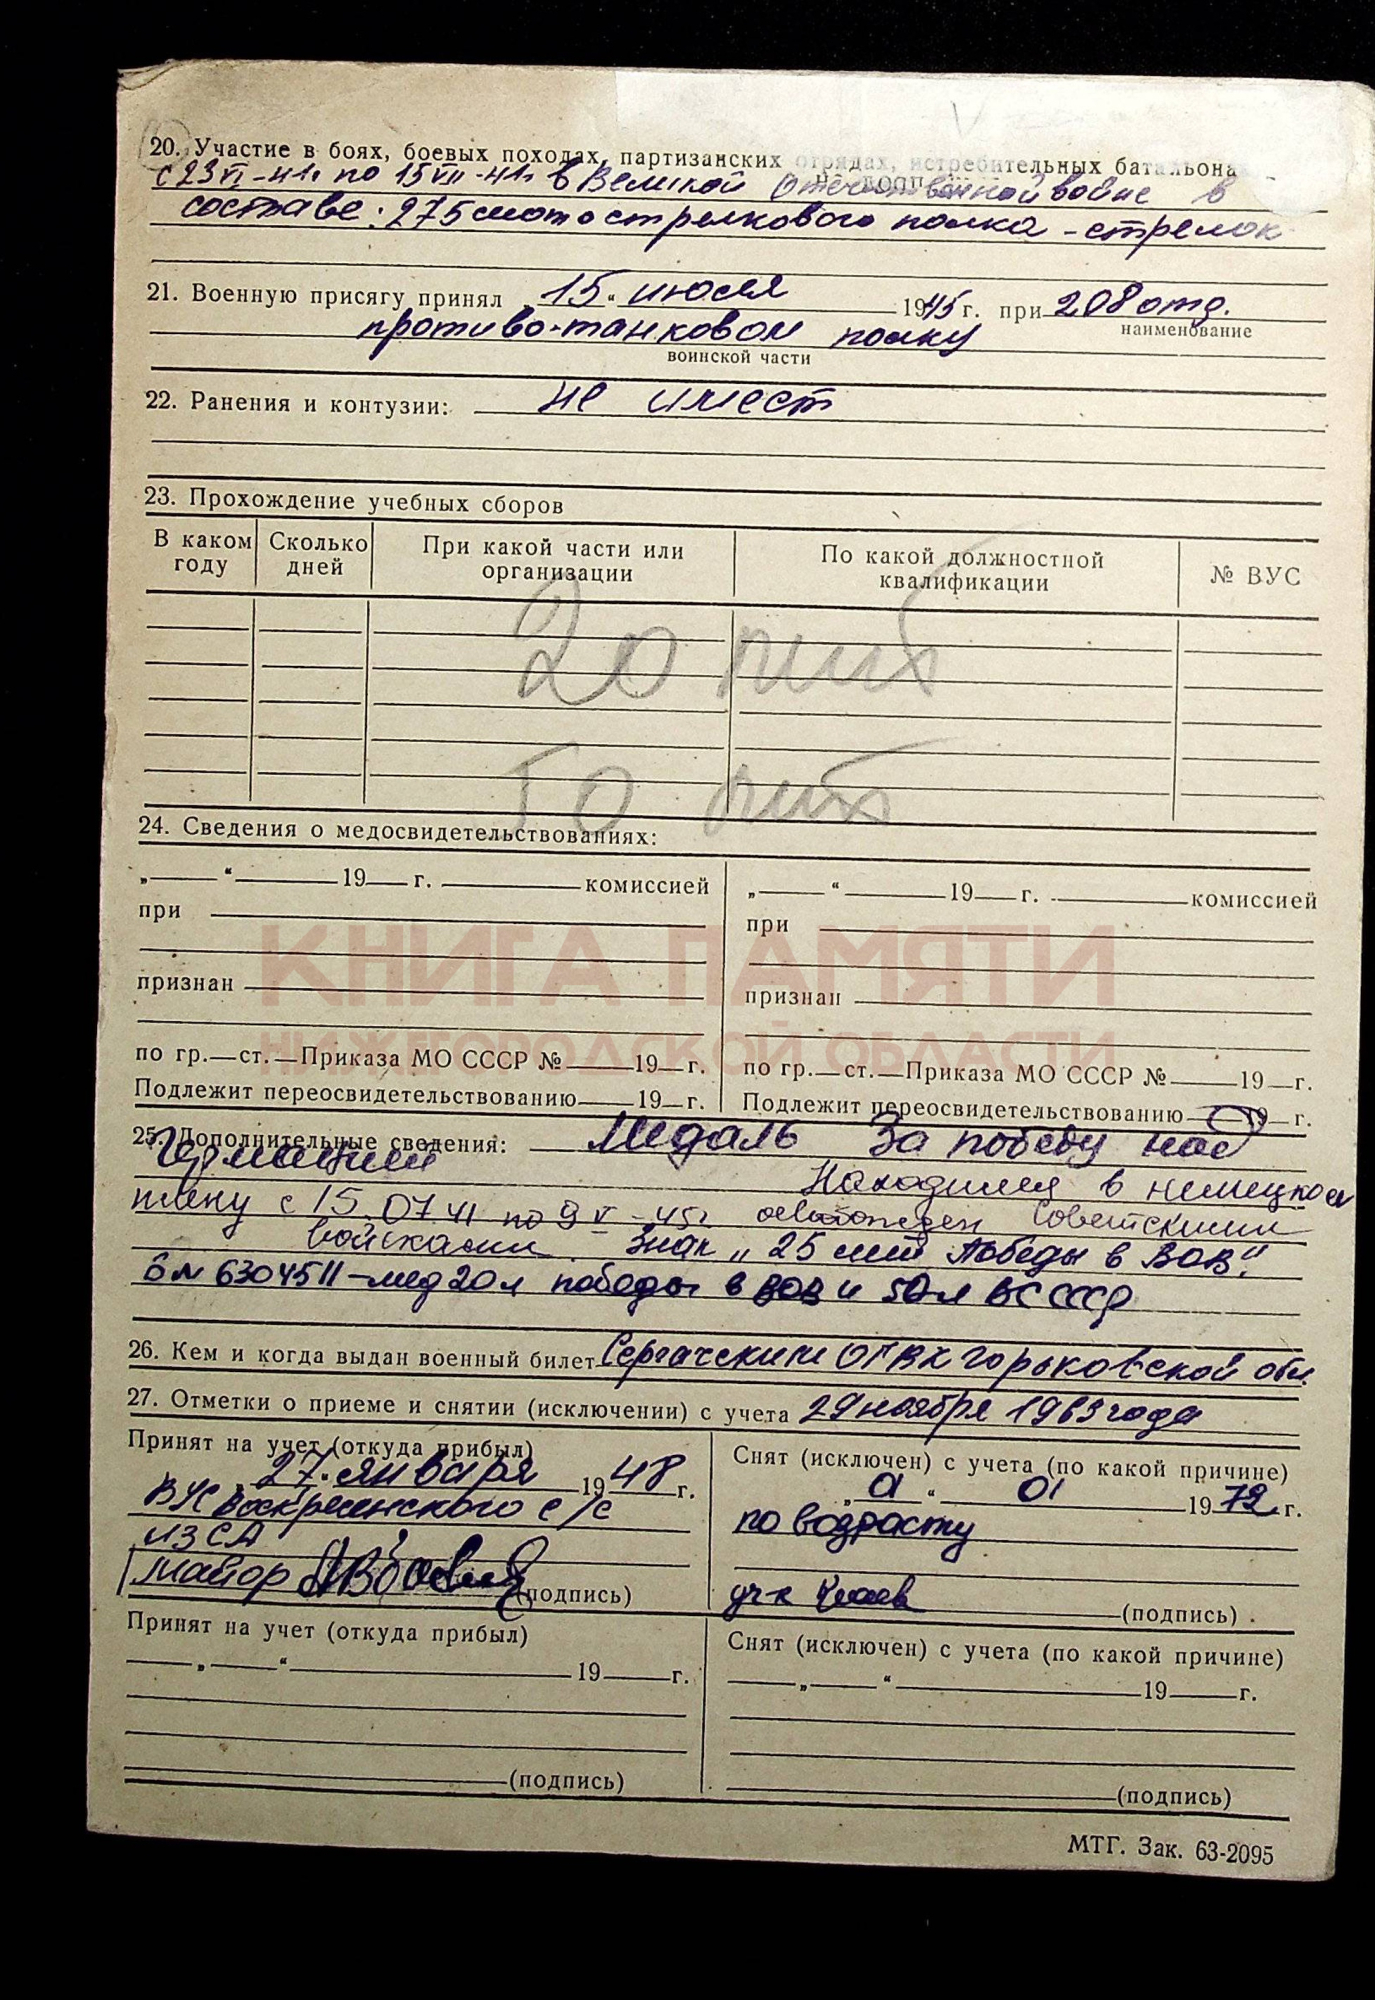 20. Участие в боях, боевых походах, партизанских отрядах, истребительных батальонах
с 23 VI-41г по 15 VII-41г в Великой Отечественной войне в
составе: 275 мотострелкового полка - стрелок
21. Военную присягу принял „15“ июля 1945 г. при 208 отд.
наименование
противо-танковом полку
воинской части
22. Ранения и контузии: не имеет
23. Прохождение учебных сборов
В каком году Сколько дней При какой части или организации По какой должностной квалификации № ВУС
20 лет
50 лет
24. Сведения о медосвидетельствованиях:
„ “ 19 г. комиссией „ “ 19 г. комиссией
при при
КНИГА ПАМЯТИ
признан признан
НИЖЕГОРОДСКОЙ ОБЛАСТИ
по гр. ст. Приказа МО СССР № 19 г. по гр. ст. Приказа МО СССР № 19 г.
Подлежит переосвидетельствованию 19 г. Подлежит переосвидетельствованию 19 г.
25. Дополнительные сведения: Медаль За победу над
Германией
Находился в немецком
плену с 15.07 41 по 9 V-45г освобожден Советскими
войсками. Знак „25 лет Победы в ВОВ“.
б № 6304511 - мед 20 л победы в ВОВ и 50 л ВС СССР
26. Кем и когда выдан военный билет Сергачским ОГВК Горьковской обл.
27. Отметки о приеме и снятии (исключении) с учета 29 ноября 1963 года
Принят на учет (откуда прибыл) Снят (исключен) с учета (по какой причине)
27. января 1948 г. „ “ 01 1972 г.
ВУС Воскресенского с/с по возрасту
из СА
майор (подпись) (подпись)
Принят на учет (откуда прибыл) Снят (исключен) с учета (по какой причине)
„ “ 19 г. „ “ 19 г.
(подпись) (подпись)
МТГ. Зак. 63-2095